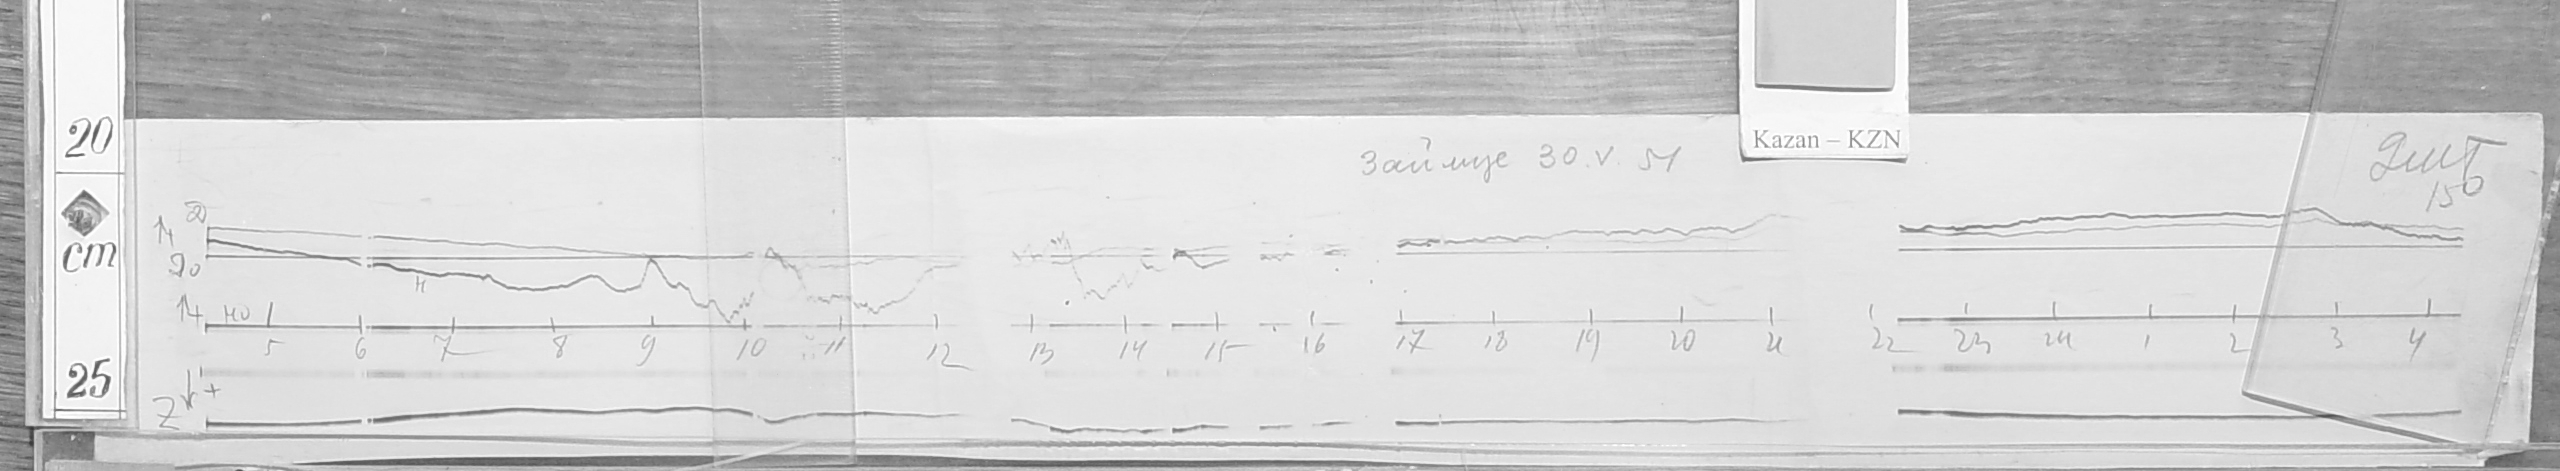 20
cm
25
Kazan – KZN
Займище 30.V.51
150
D
H
Z +
5 6 7 8 9 10 11 12 13 14 15 16 17 18 19 20 21 22 23 24 1 2 3 4